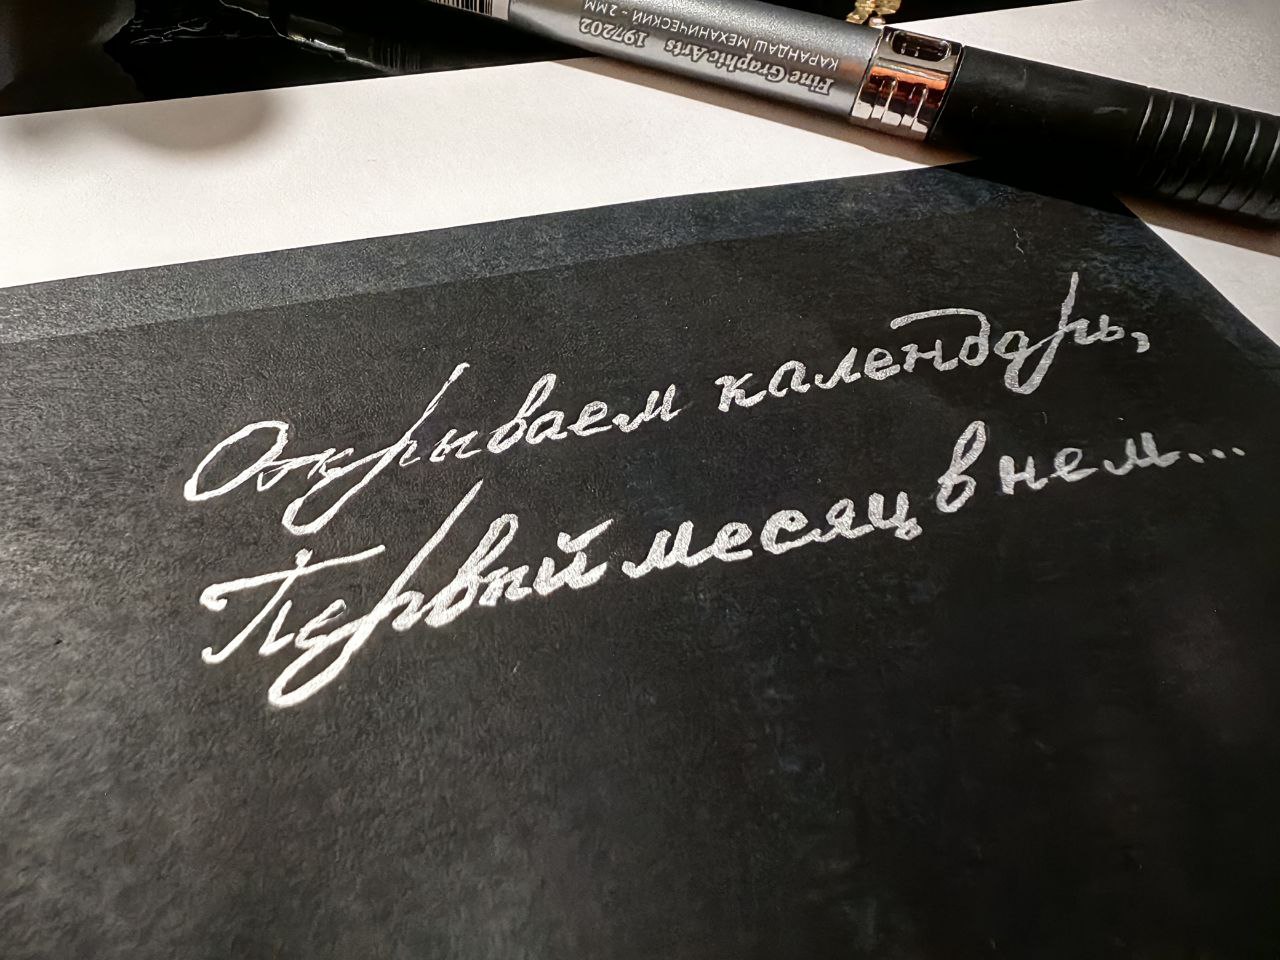 Fine GraphicArts 197202
КАРАНДАШ МЕХАНИЧЕСКИЙ - 2ММ
Открываем календарь,
Первый месяц в нем...